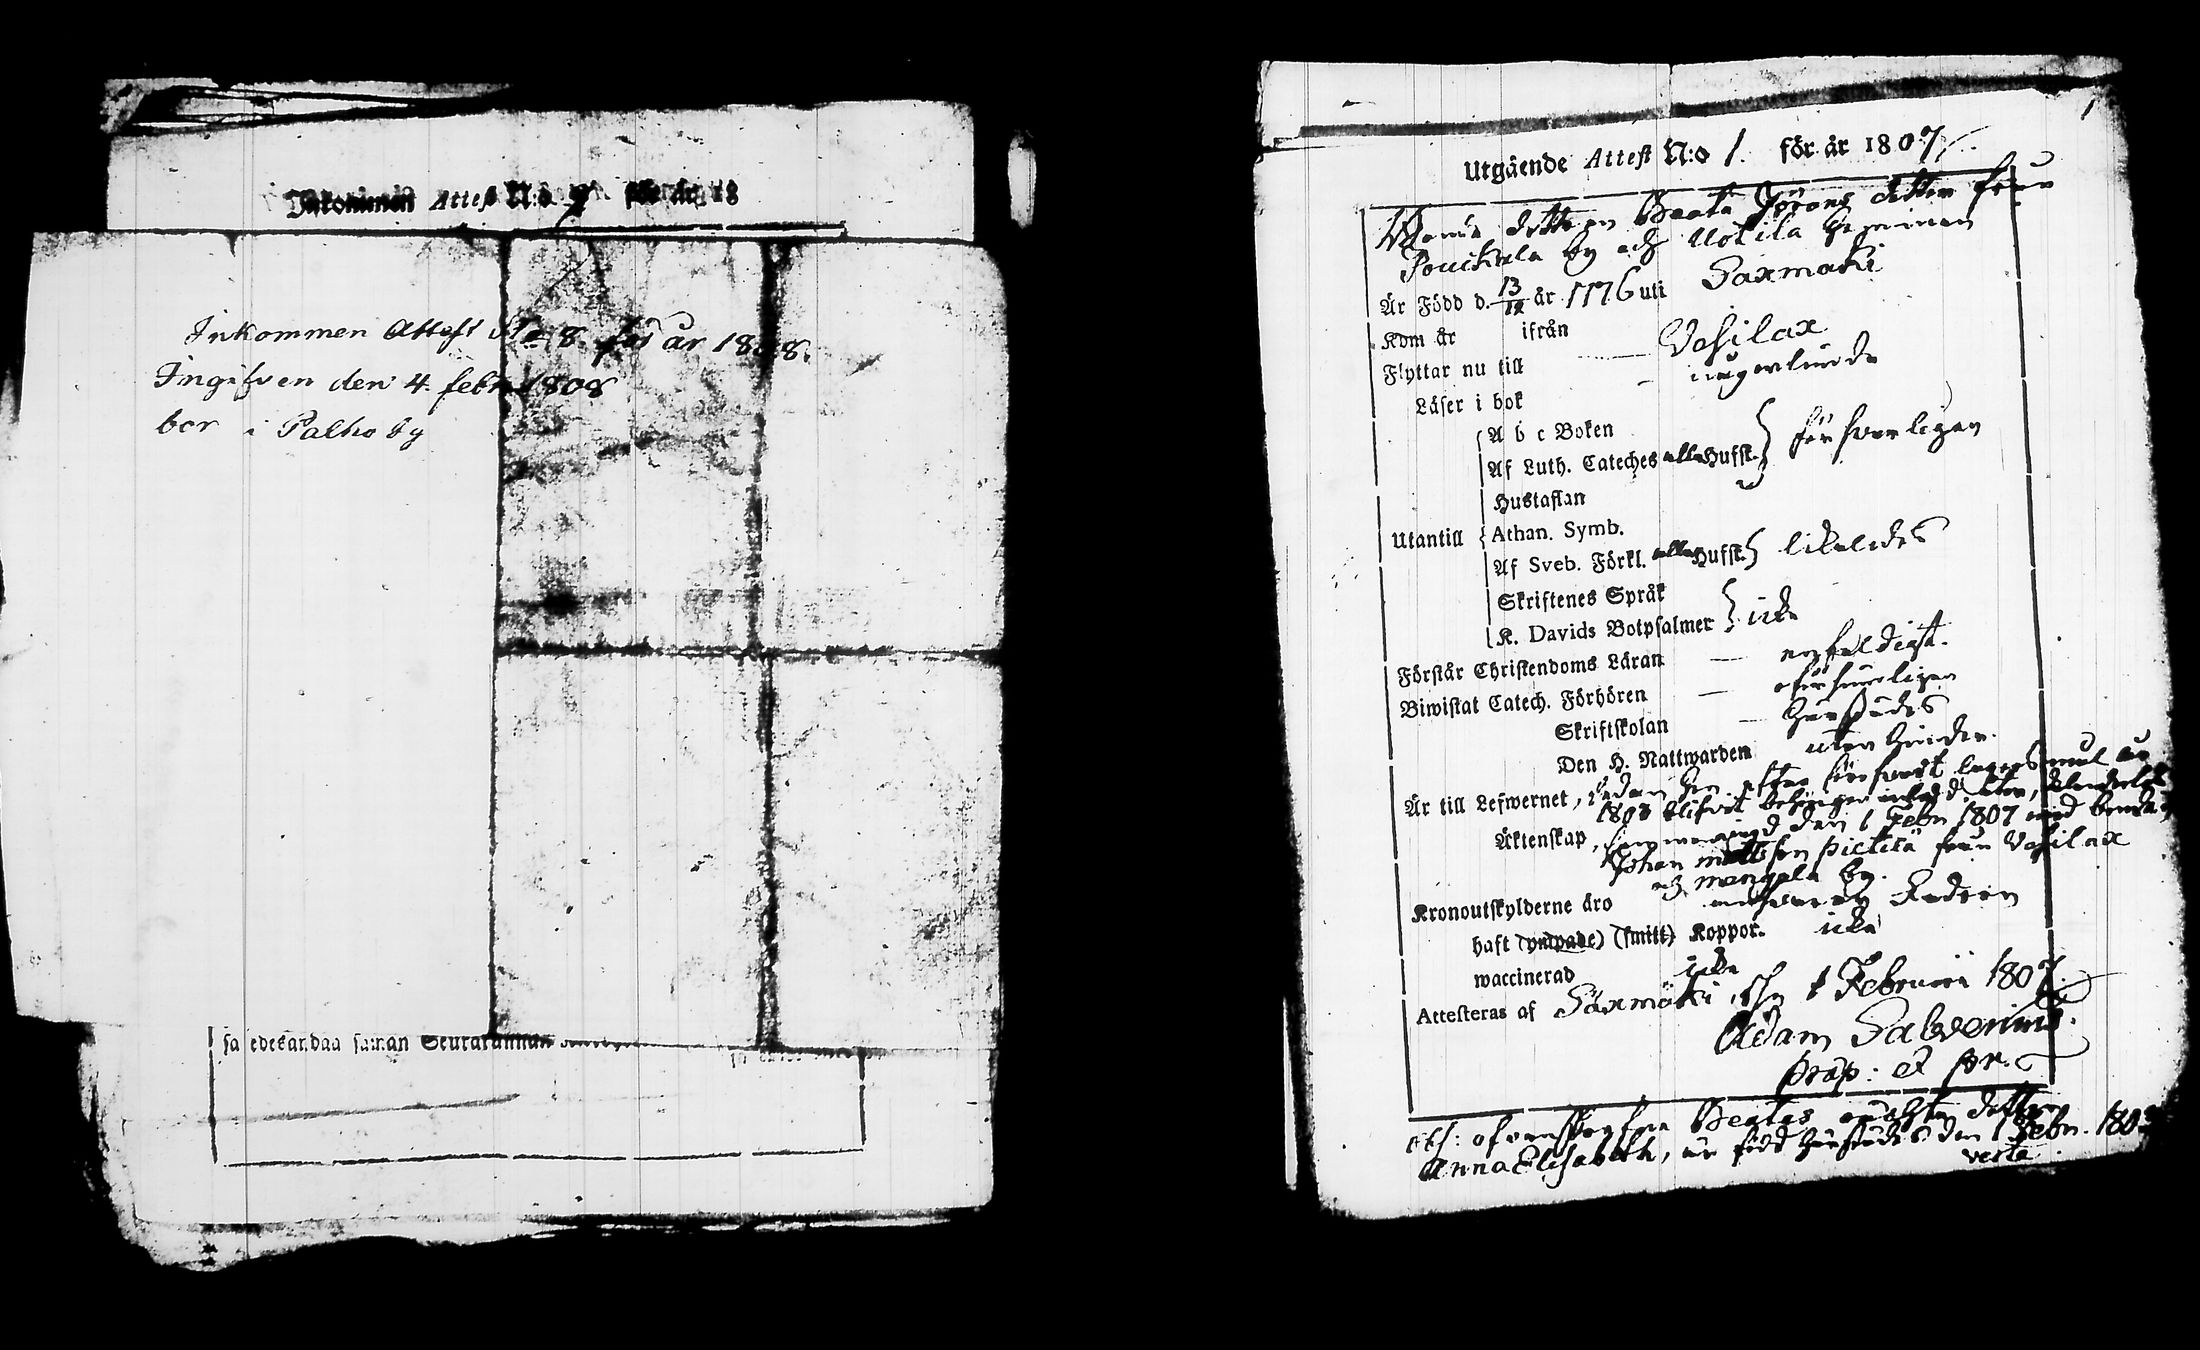 Inkommen Attest N:o för år 18
Inkommen Attest No 8 för år 1808.
Ingifven den 4. febr. 1808
bor i Palho by
sa edesandaa saman Seurakunnan
1
Utgående Attest N:o 1. för år 1807.
Beata Jörans dotter från
Jouckula by och Uotila hemman
Är Född d. 13/12 år 1776 uti Saxmäki
Kom år ifrån
Flyttar nu till Vesilax
Läser i bok någorlunda
A b c Boken
Af Luth. Cateches alla Hufst. försvarligen
Hustaflan
Utantill Athan. Symb.
Af Sveb. Förkl. alla Hufst. likaledes
Skriftenes Språk
K. Davids Botpsalmer icke
Förstår Christendoms Läran enfaldigt.
Biwistat Catech. Förhören oförsumligen
Skriftskolan härstädes
Den H. Nattwarden utan hinder.
Är till Lefwernet, sedan hon efter lägersmål
1803 blifvit
Äktenskap, den 1 Febr. 1807 med
Johan Mattsson Pietilä från Vesilax
och Mengälä by.
Kronoutskylderne äro
haft (ympade) (smitt) Koppor. icke
waccinerad icke
Attesteras af Säxmäki, den 1 Februarii 1807.
Adam Salvenius.
præp: et p:r.
obs: ofvanskrefne Beatas oächta dotter
Anna Elisabeth, är född härstädes den 1 Febr. 1803
verte.